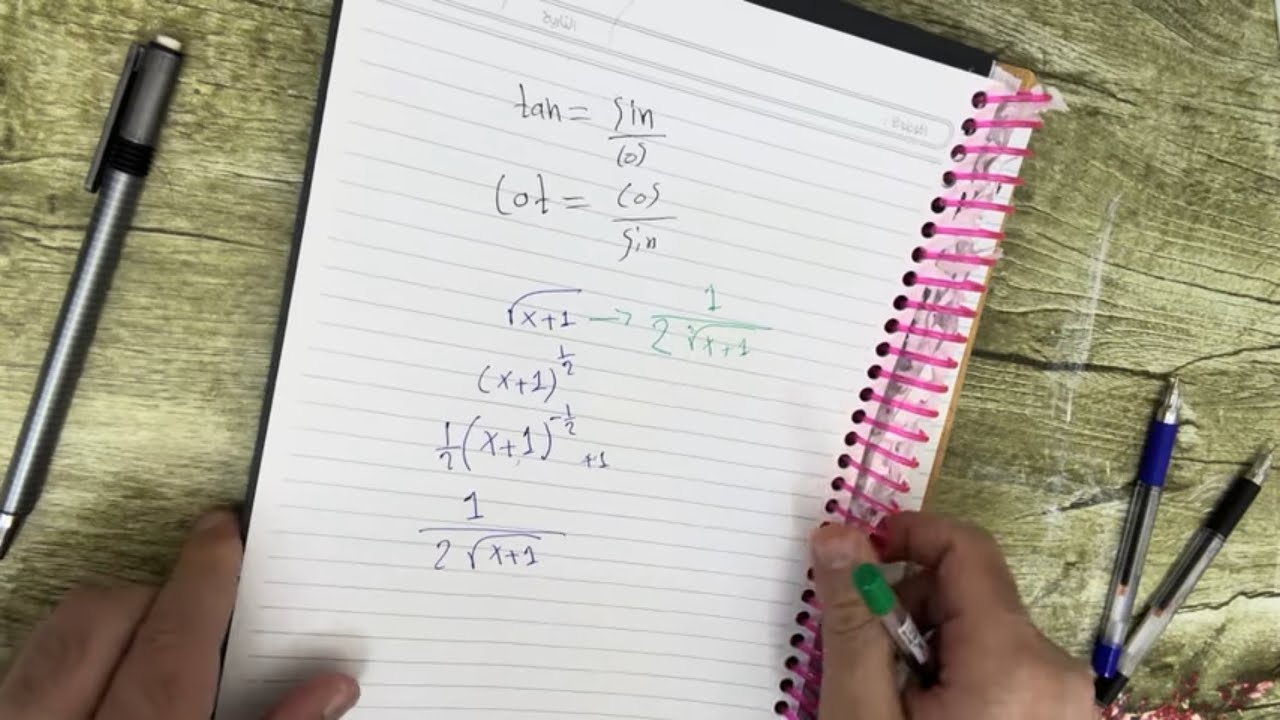 التاريخ
tan = sin
cos
cot = cos
sin
√x+1 → 1
2 √x+1
(x+1)^1/2
1/2 (x+1)^-1/2 +1
1
2 √x+1